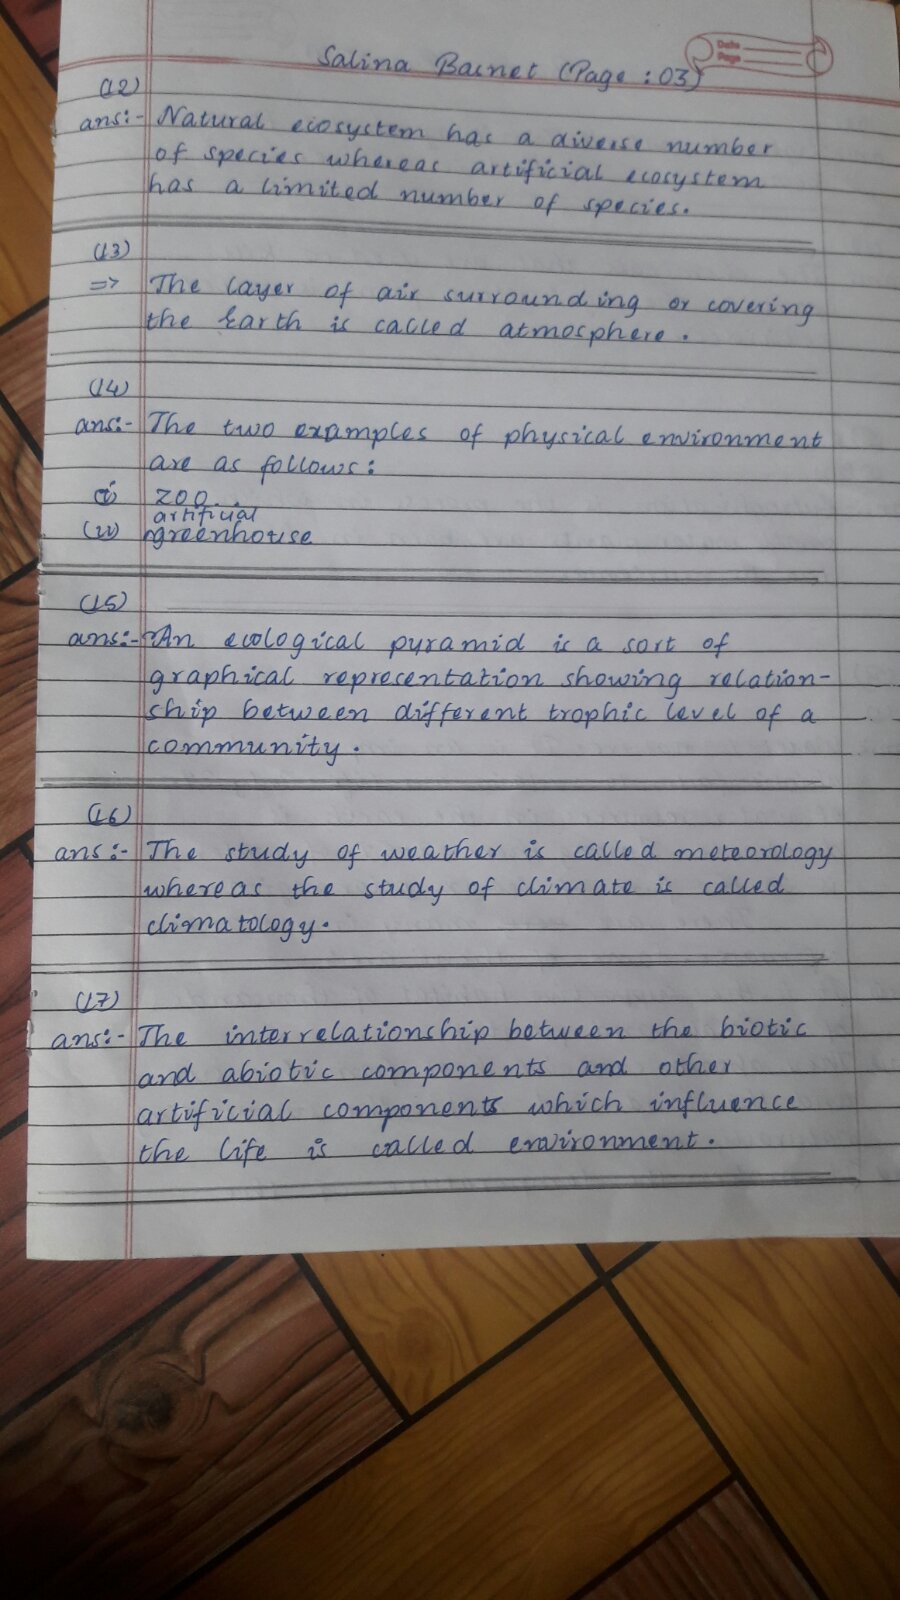 Date
Page
Salina Basnet (Page : 03)
(12)
ans:- Natural ecosystem has a diverse number
of species whereas artificial ecosystem
has a limited number of species.
(13)
=> The layer of air surrounding or covering
the Earth is called atmosphere.
(14)
ans:- The two examples of physical environment
are as follows:
(i) zoo
artificial
(ii) greenhouse
(15)
ans:- An ecological pyramid is a sort of
graphical representation showing relation-
ship between different trophic level of a
community.
(16)
ans:- The study of weather is called meteorology
whereas the study of climate is called
climatology.
(17)
ans:- The interrelationship between the biotic
and abiotic components and other
artificial components which influence
the life is called environment.